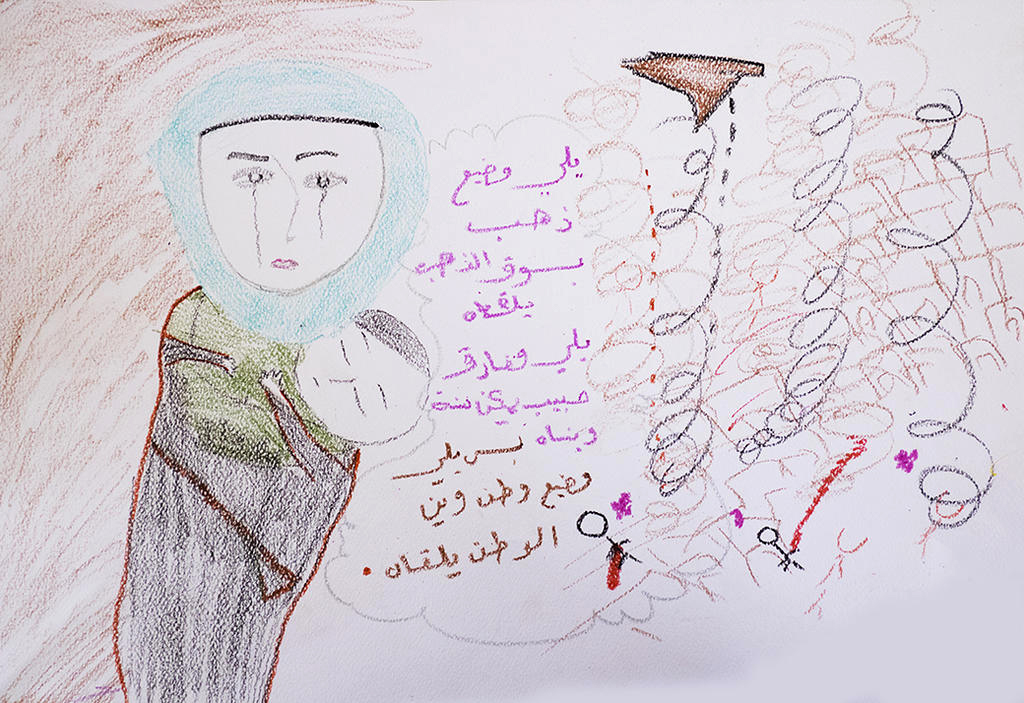 يلي وضيع
ذهب
بسوق الذهب
يلقاه
يلي وفارق
حبيب يمكن سنة
وينساه
بس يلي
وضيع وطن وين
الوطن يلقاه .